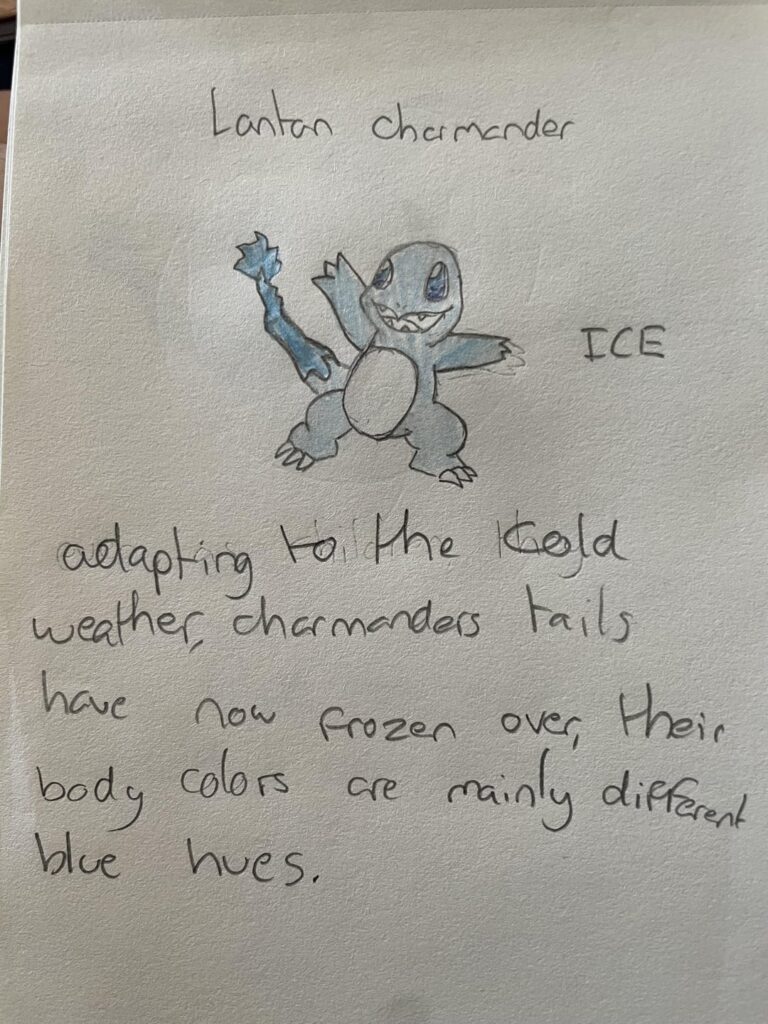 Lantan charmander
ICE
adapting to the cold
weather, charmanders tails
have now frozen over, their
body colors are mainly different
blue hues.